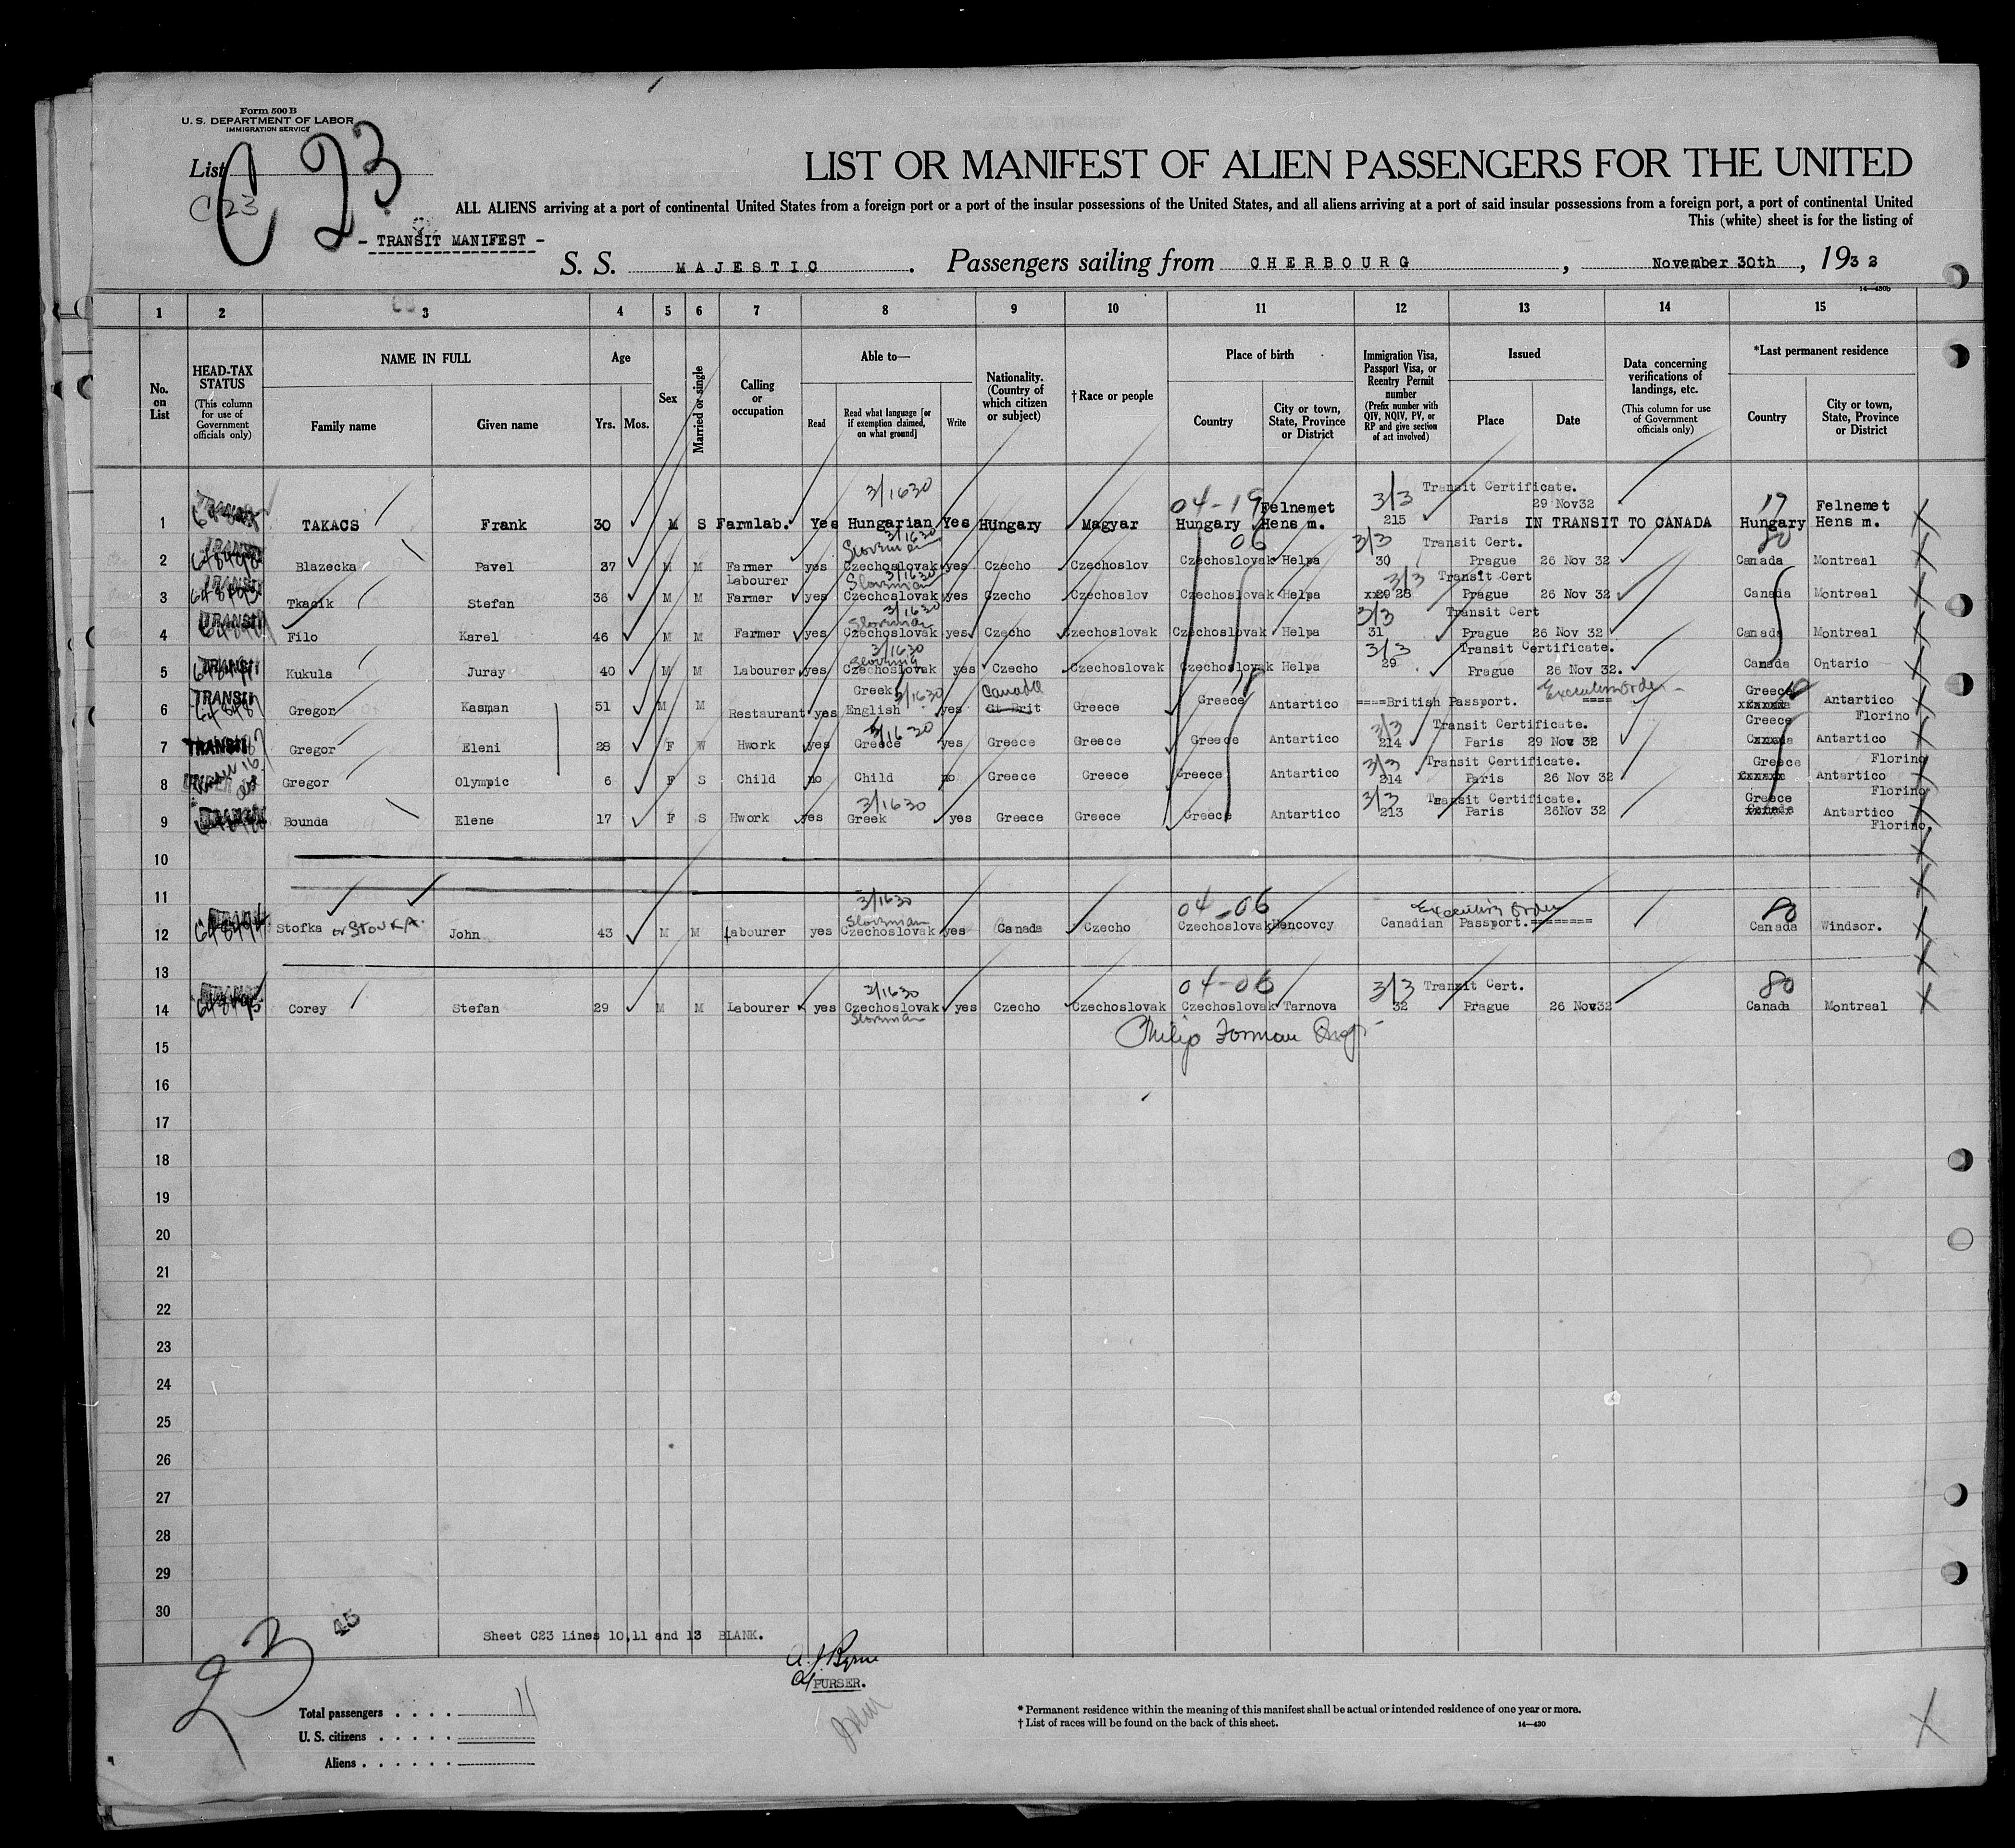 Form 500 B
U. S. DEPARTMENT OF LABOR
IMMIGRATION SERVICE
List
C 23
C23
- TRANSIT MANIFEST -
LIST OR MANIFEST OF ALIEN PASSENGERS FOR THE UNITED
ALL ALIENS arriving at a port of continental United States from a foreign port or a port of the insular possessions of the United States, and all aliens arriving at a port of said insular possessions from a foreign port, a port of continental United
This (white) sheet is for the listing of
S. S. MAJESTIC. Passengers sailing from CHERBOURG, November 30th, 1932
14—430b
1 2 3 4 5 6 7 8 9 10 11 12 13 14 15
No. on List
HEAD-TAX STATUS (This column for use of Government officials only)
NAME IN FULL
Family name Given name
Age
Yrs. Mos.
Sex
Married or single
Calling or occupation
Able to—
Read Read what language [or if exemption claimed, on what ground] Write
Nationality. (Country of which citizen or subject)
†Race or people
Place of birth
Country City or town, State, Province or District
Immigration Visa, Passport Visa, or Reentry Permit number (Prefix number with QIV, NQIV, PV, or RP and give section of act involved)
Issued
Place Date
Data concerning verifications of landings, etc. (This column for use of Government officials only)
*Last permanent residence
Country City or town, State, Province or District
3/1630 04-19 Felnemet 3/3 Transit Certificate. 29 Nov32 17 Felnemet
1 TAKACS Frank 30 M S Farmlab. Yes Hungarian Yes Hungary Magyar Hungary Hens m. 215 Paris IN TRANSIT TO CANADA Hungary Hens m.
3/1630 06 3/3 Transit Cert. 80
2 Blazecka Pavel 37 M M Farmer yes Czechoslovak yes Czecho Czechoslov Czechoslovak Helpa 30 Prague 26 Nov 32 Canada Montreal
Labourer 3/1630 3/3 Transit Cert
3 Tkacik Stefan 36 M M Farmer yes Czechoslovak yes Czecho Czechoslov Czechoslovak Helpa 28 Prague 26 Nov 32 Canada Montreal
3/1630 3/3 Transit Cert
4 Filo Karel 46 M M Farmer yes Czechoslovak yes Czecho Czechoslovak Czechoslovak Helpa 31 Prague 26 Nov 32 Canada Montreal
3/1630 3/3 Transit Certificate.
5 Kukula Juray 40 M M Labourer yes Czechoslovak yes Czecho Czechoslovak Czechoslovak Helpa 29 Prague 26 Nov 32. Canada Ontario
TRANSIT Greek 3/1630 Canada Executive order Greece
6 Gregor Kasman 51 M M Restaurant yes English yes Gt Brit Greece Greece Antartico ====British Passport. ==== xxxxxx Antartico
3/1630 3/3 Transit Certificate. Greece Florino
7 TRANSIT Gregor Eleni 28 F W Hwork yes Greece yes Greece Greece Greece Antartico 214 Paris 29 Nov 32 Antartico
3/3 Transit Certificate. Greece Florino
8 Gregor Olympic 6 F S Child no Child no Greece Greece Greece Antartico 214 Paris 26 Nov 32 xxxxxx Antartico
3/1630 3/3 Transit Certificate. Greece Florino
9 Bounda Elene 17 F S Hwork yes Greek yes Greece Greece Greece Antartico 213 Paris 26Nov 32 Antartico
Florino
10
11
3/1630 04-06 Executive Order 80
12 Stofka or STOUKA John 43 M M Labourer yes Czechoslovak yes Canada Czecho Czechoslovak Hencovcy Canadian Passport.======== Canada Windsor.
13
3/1630 04-06 3/3 Transit Cert. 80
14 Corey Stefan 29 M M Labourer yes Czechoslovak yes Czecho Czechoslovak Czechoslovak Tarnova 32 Prague 26 Nov32 Canada Montreal
Philip Forman
15
16
17
18
19
20
21
22
23
24
25
26
27
28
29
30
23
45
Sheet C23 Lines 10,11 and 13 BLANK.
A. J. Byrne
PURSER.
Total passengers . . . . 11
U. S. citizens . . . . .
Aliens . . . . .
* Permanent residence within the meaning of this manifest shall be actual or intended residence of one year or more.
† List of races will be found on the back of this sheet.
14—430